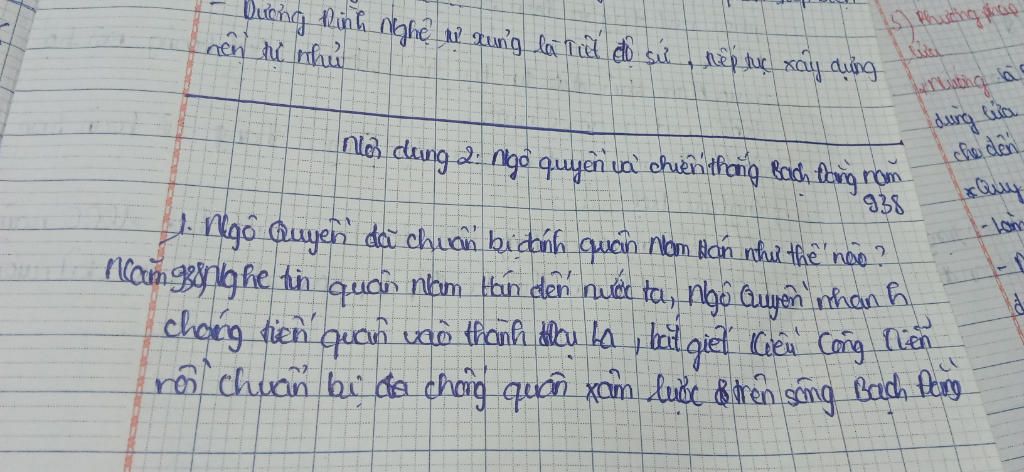 - Dương Đình Nghệ tự xưng là Tiết độ sứ, tiếp tục xây dựng
nền tự chủ
Nội dung 2: Ngô quyền và chiến thắng Bạch Đằng năm
938
1. Ngô Quyền đã chuẩn bị đánh quân Nam Hán như thế nào?
Năm 938 nghe tin quân Nam Hán đến nước ta, Ngô Quyền nhanh
chóng tiến quân vào thành Đại La, bắt giết Kiều Công Tiễn
rồi chuẩn bị chống quân xâm lược trên sông Bạch Đằng
5) Phương pháp
của
dùng của
cho đến
* Quy
- Loàn